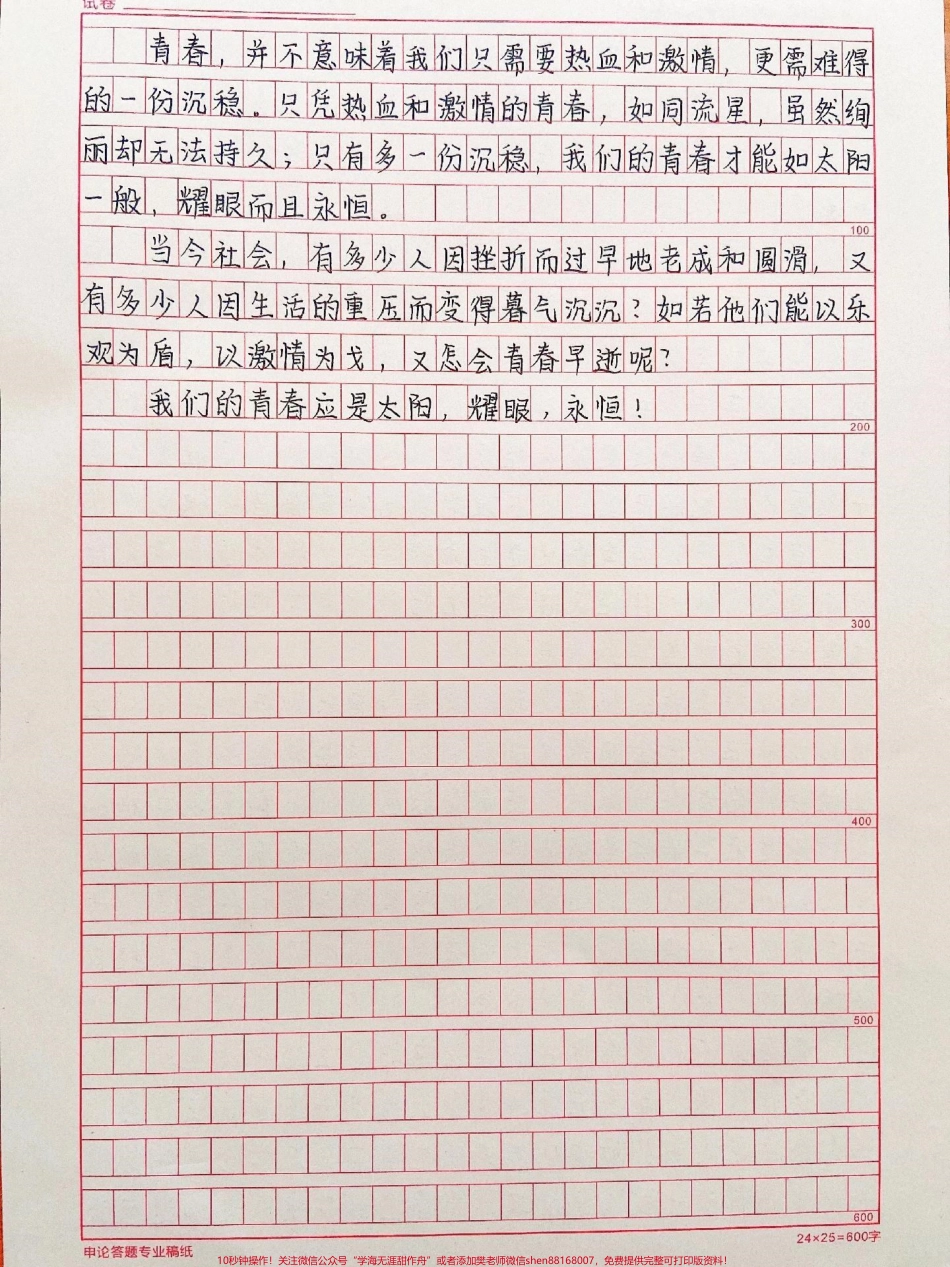 试卷
青春，并不意味着我们只需要热血和激情，更需难得
的一份沉稳。只凭热血和激情的青春，如同流星，虽然绚
丽却无法持久；只有多一份沉稳，我们的青春才能如太阳
一般，耀眼而且永恒。
100
当今社会，有多少人因挫折而过早地老成和圆滑，又
有多少人因生活的重压而变得暮气沉沉？如若他们能以乐
观为盾，以激情为戈，又怎会青春早逝呢？
我们的青春应是太阳，耀眼，永恒！
200
300
400
500
600
24×25=600字
申论答题专业稿纸
10秒钟操作！关注微信公众号“学海无涯甜作舟”或者添加樊老师微信shen88168007，免费提供完整可打印版资料！